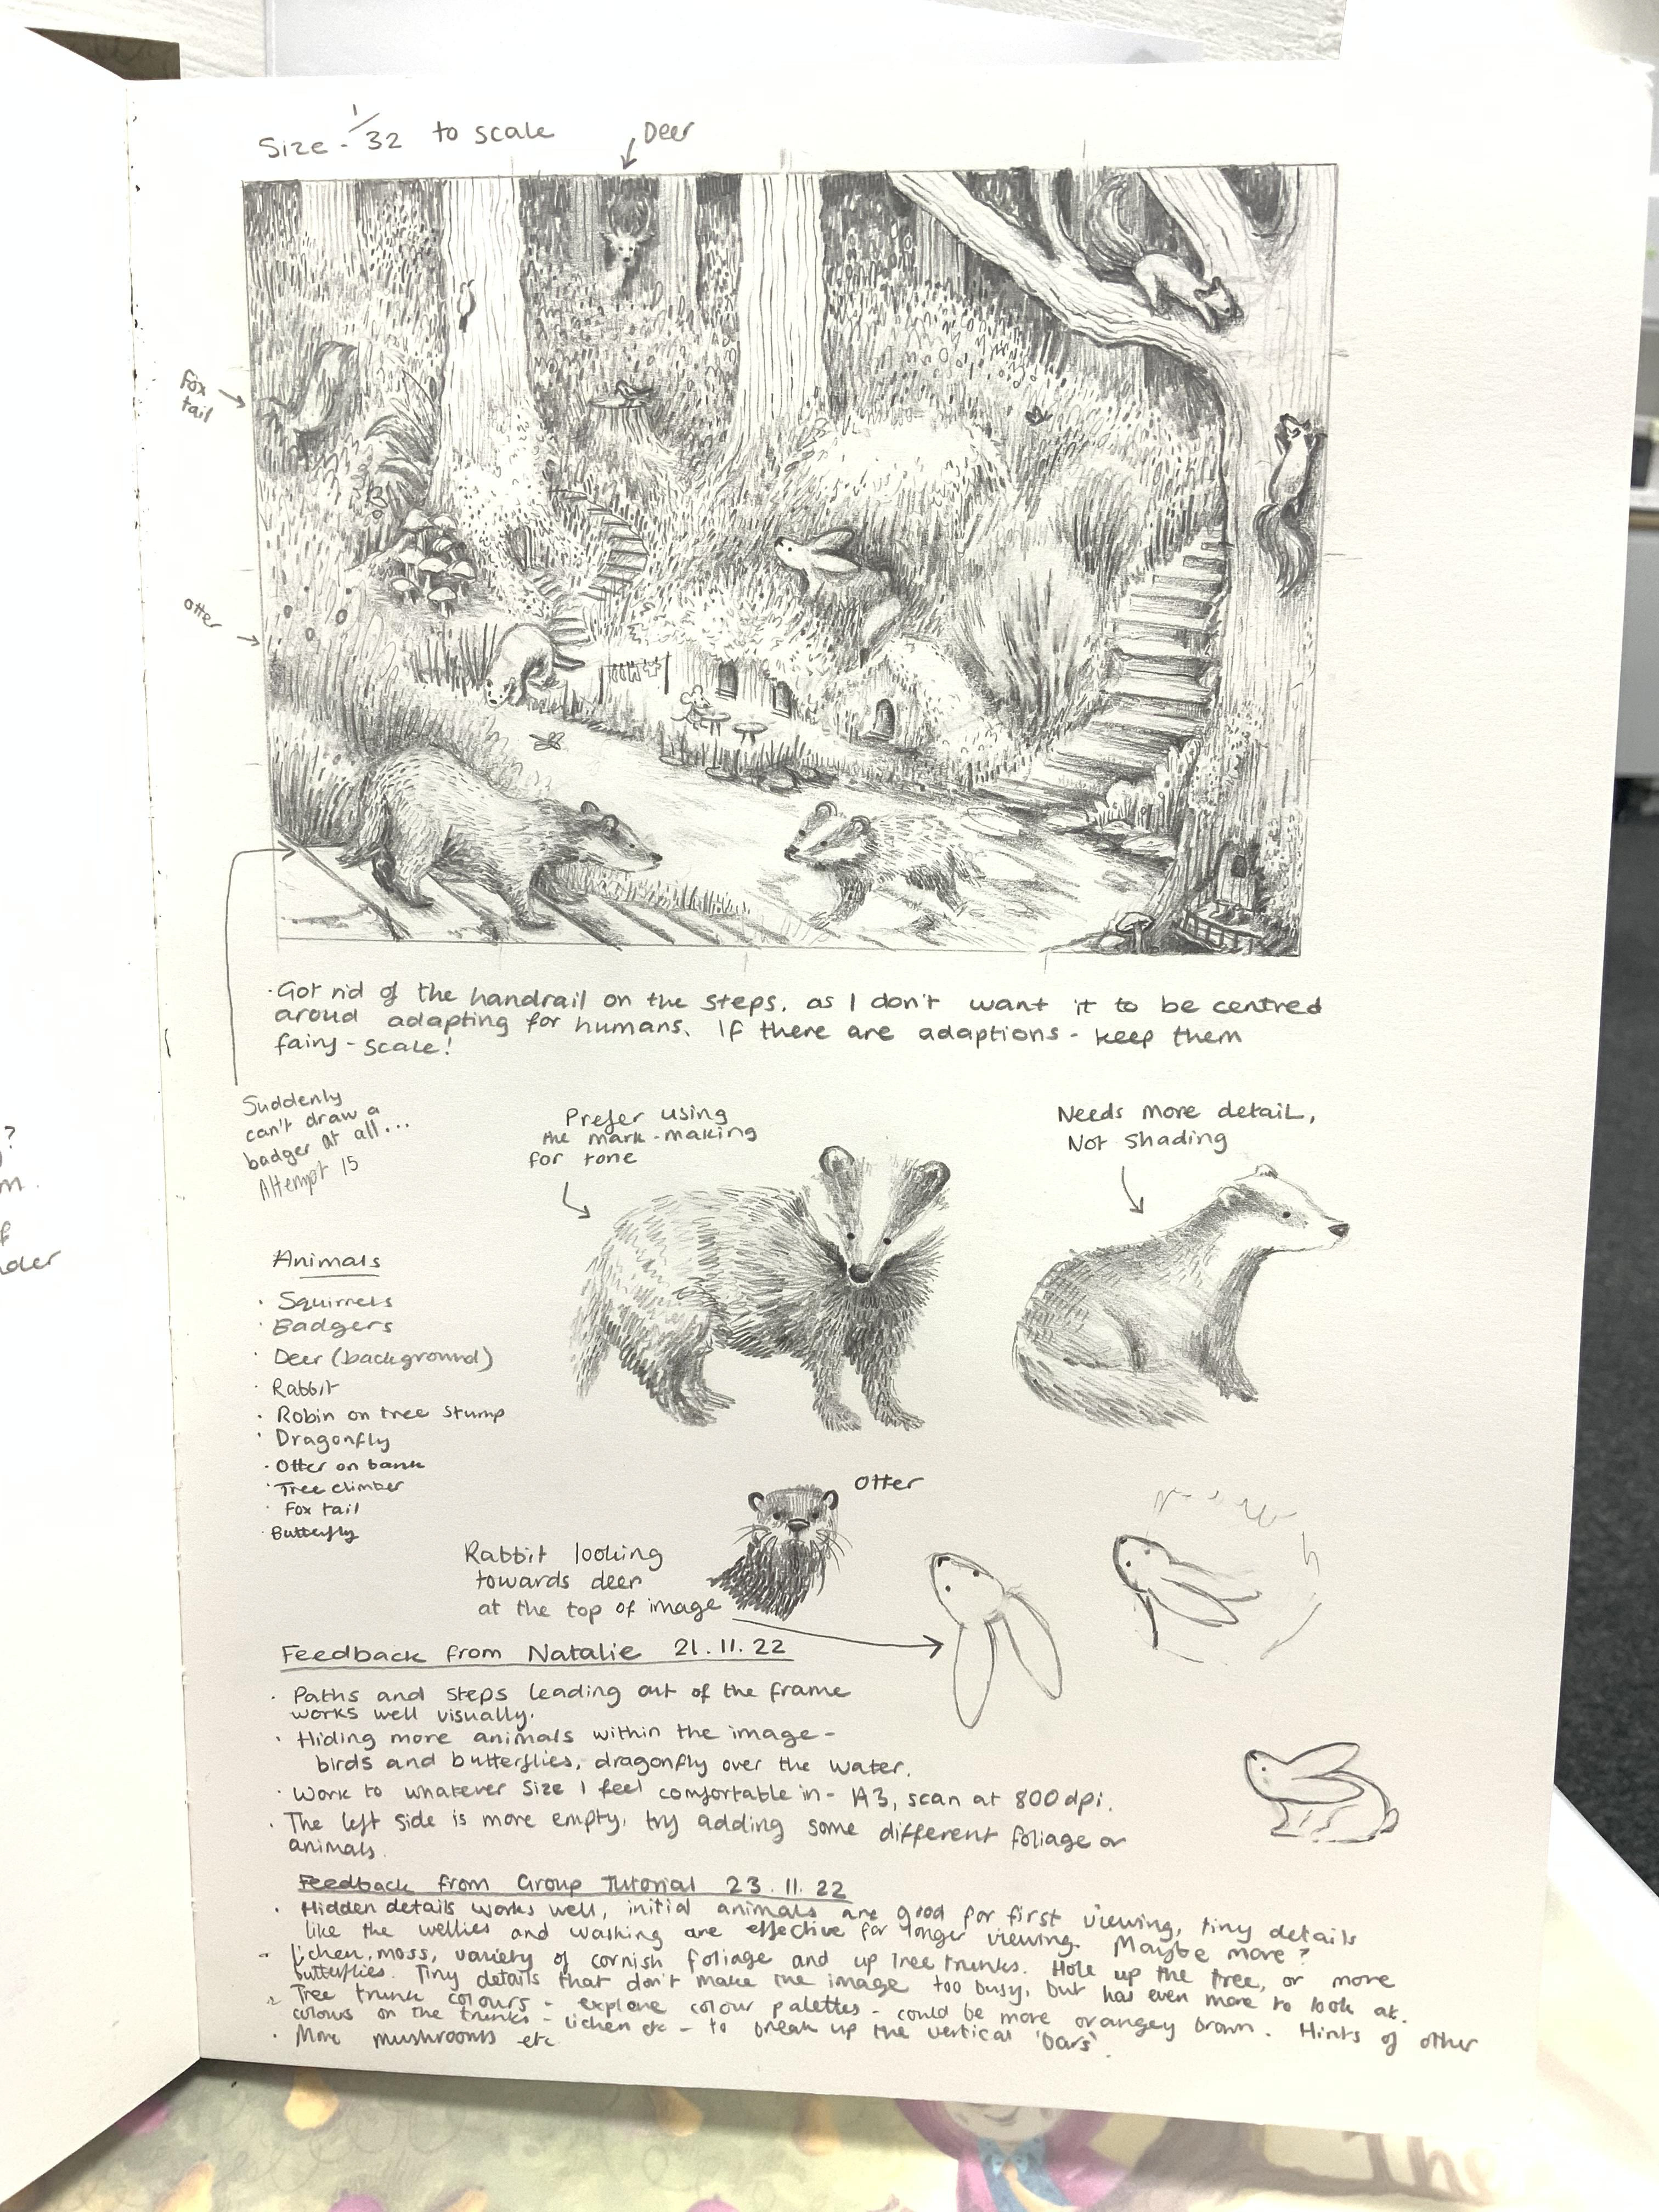 Size - 1/32 to scale
Deer
Fox
tail
otter
· Got rid of the handrail on the steps, as I don't want it to be centred
aroud adapting for humans. If there are adaptions - keep them
fairy-scale!
Suddenly
can't draw a
badger at all...
Attempt 15
Prefer using
the mark-making
for tone
Needs more detail,
Not shading
Animals
· Squirrels
· Badgers
· Deer (background)
· Rabbit
· Robin on tree stump
· Dragonfly
· Otter on bank
· Tree climber
· Fox tail
· Butterfly
Otter
Rabbit looking
towards deer
at the top of image
Feedback from Natalie 21.11.22
· Paths and steps leading out of the frame
works well visually.
· Hiding more animals within the image -
birds and butterflies, dragonfly over the water.
· Work to whatever size I feel comfortable in - A3, scan at 800dpi.
· The left side is more empty, try adding some different foliage or
animals.
Feedback from Group Tutorial 23.11.22
· Hidden details works well, initial animals are good for first viewing, tiny details
like the wellies and washing are effective for longer viewing. Maybe more?
- Lichen, moss, variety of cornish foliage and up tree trunks. Hole up the tree, or more
butterflies. Tiny details that don't make the image too busy, but has even more to look at.
Tree trunk colours - explore colour palettes - could be more orangey brown. Hints of other
colours on the trunks - Lichen etc - to break up the vertical 'bars'.
· More mushrooms etc
?
m.
f
der
The